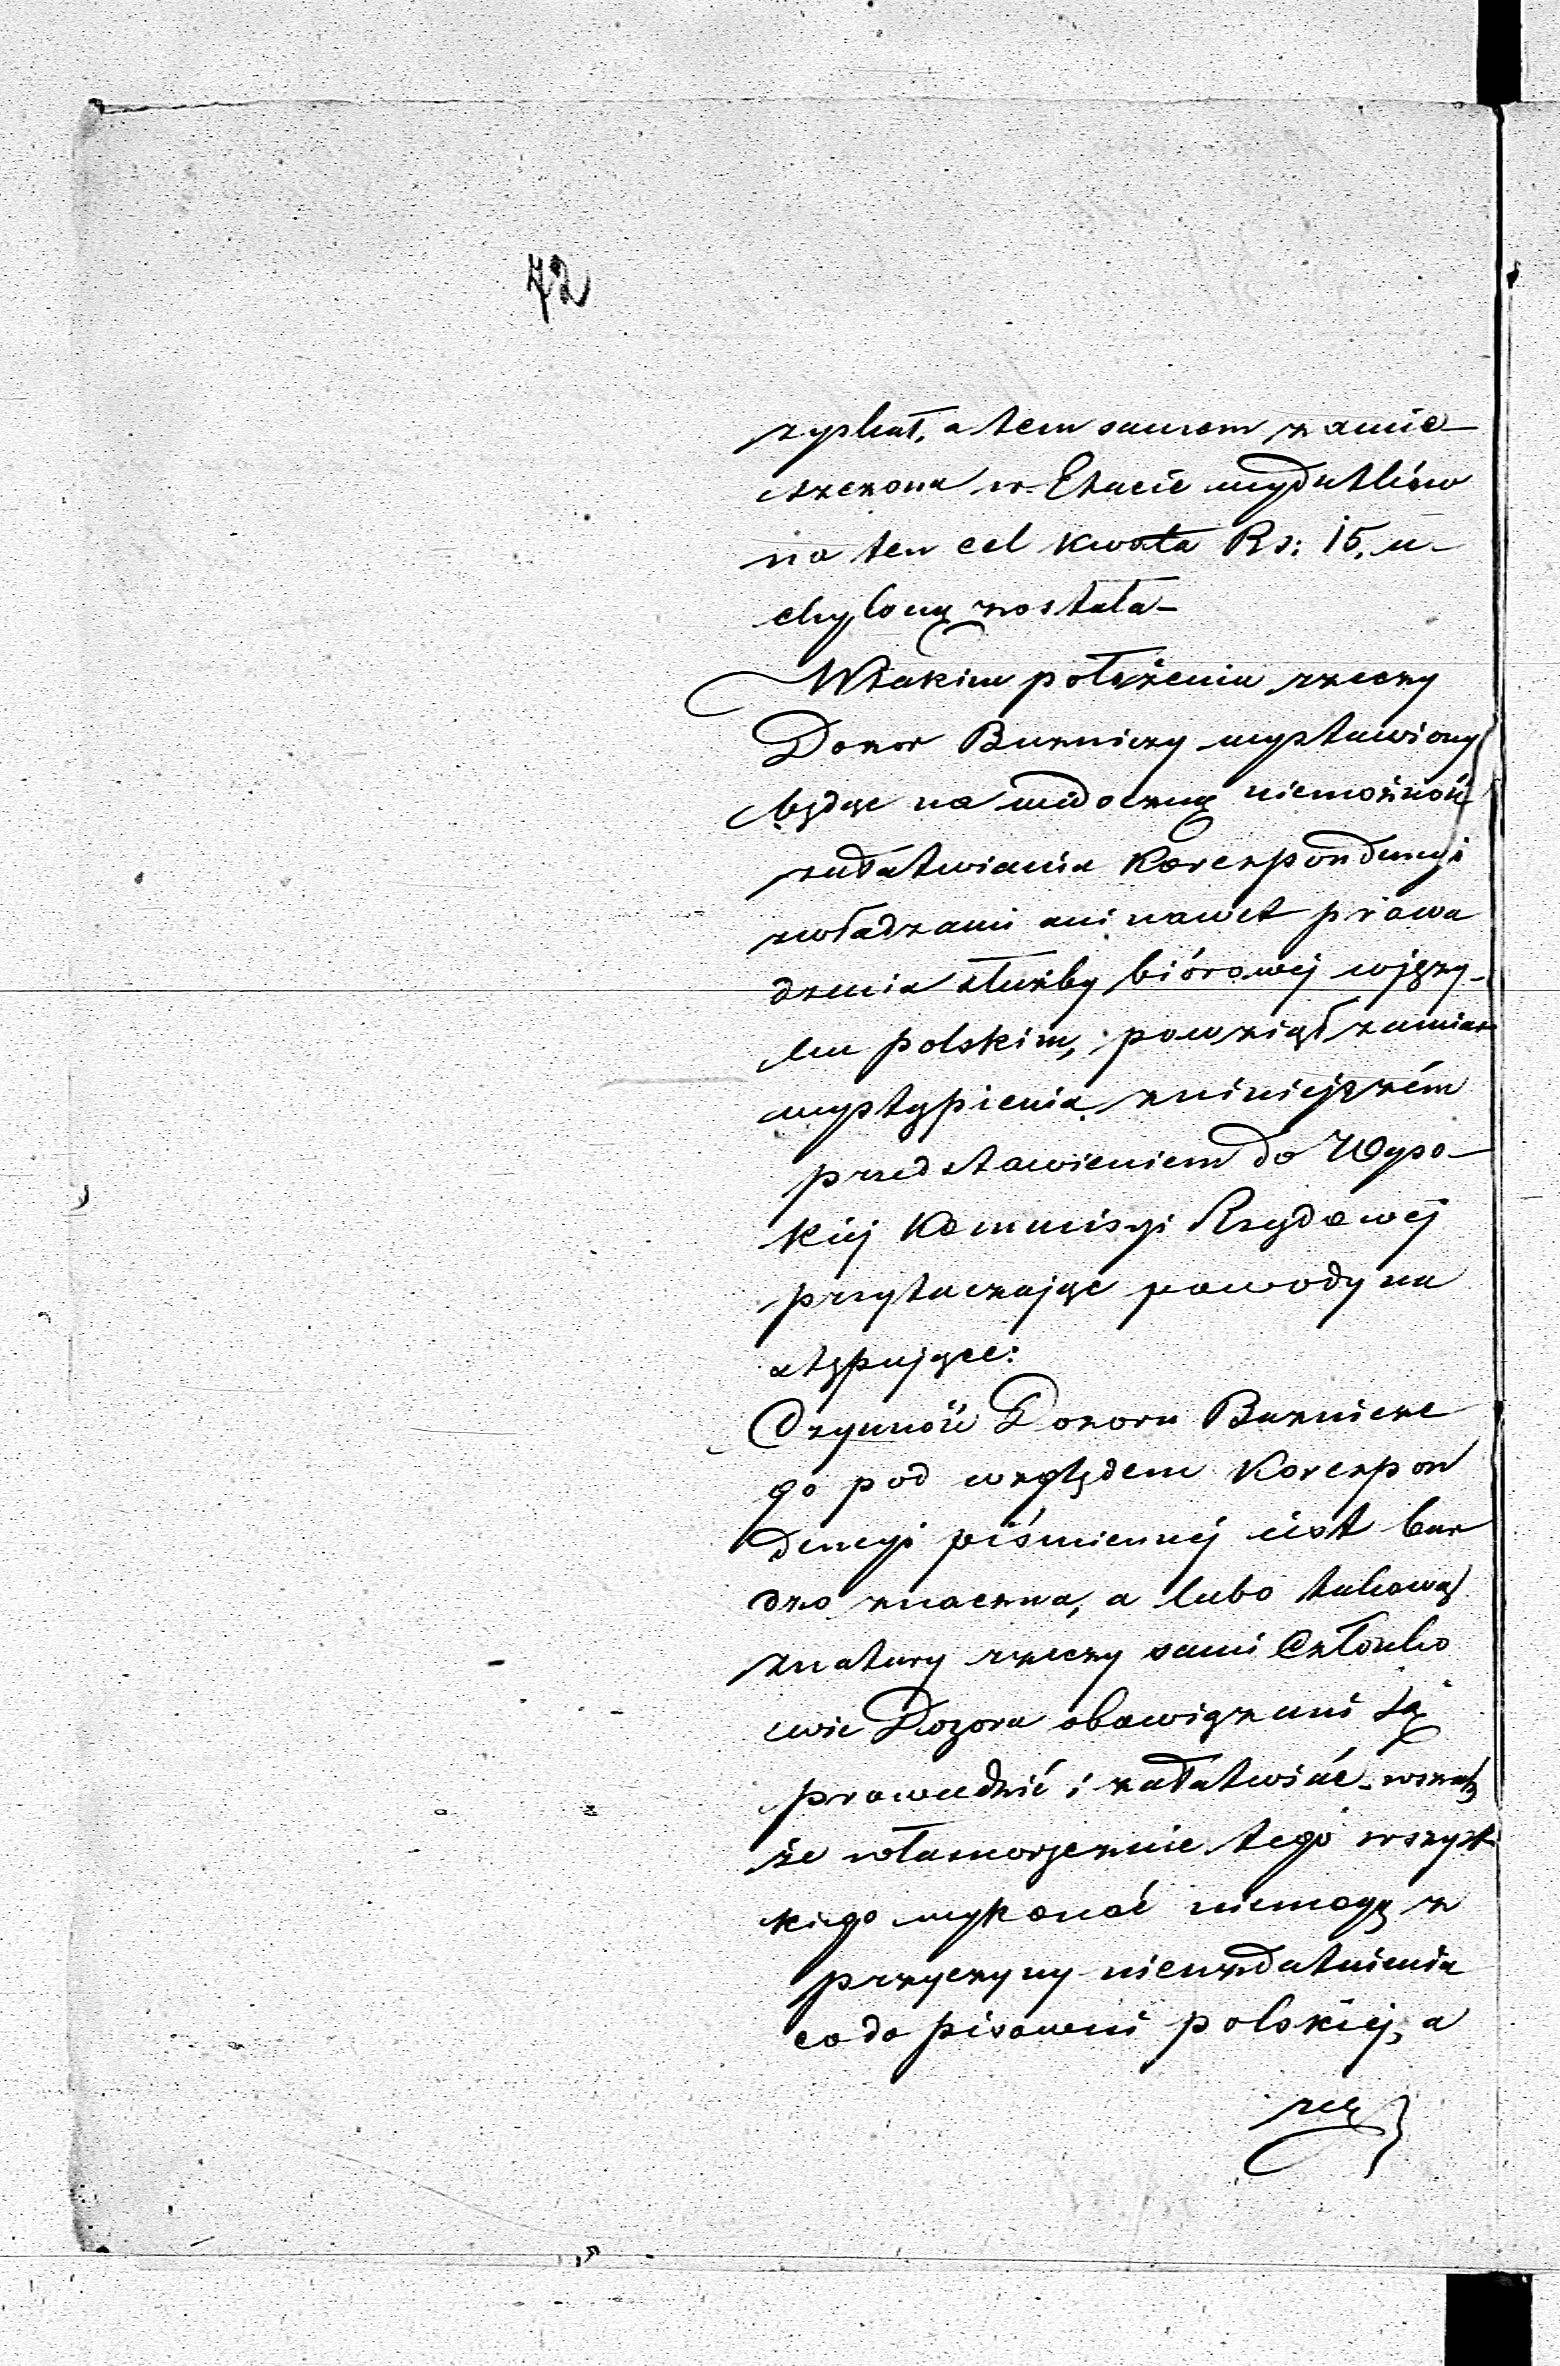 72
zyskał, a tem samem zamie-
szczona w Etacie wydatków
na ten cel kwota Rs: 15, u-
chyloną została -
W takim położeniu rzeczy
Dozor Bużniczy wystawiony
będąc na widoczną niemożność
załatwiania Korespondencyi
z władzami ani nawet prowa
dzenia służby biórowej w języ-
ku polskim, powziął zamiar
wystąpienia z niniejszém
przedstawieniem do Wyso-
kiéj Kommisyi Rządowéj
przytaczając powody na
stępujące:
Czynność Dozoru Bużnicze
go pod względem Korespon
dencyi piśmiennéj iest bar
dzo znaczna, a lubo takową
z natury rzeczy sami Członko
wie Dozoru obowiązani są
prowadzić i załatwiać, wszak
że własnoręcznie tego wszyst
kiego wykonać niemogą z
przyczyny nieuzdatnienia
co do pisowni polskiéj, a